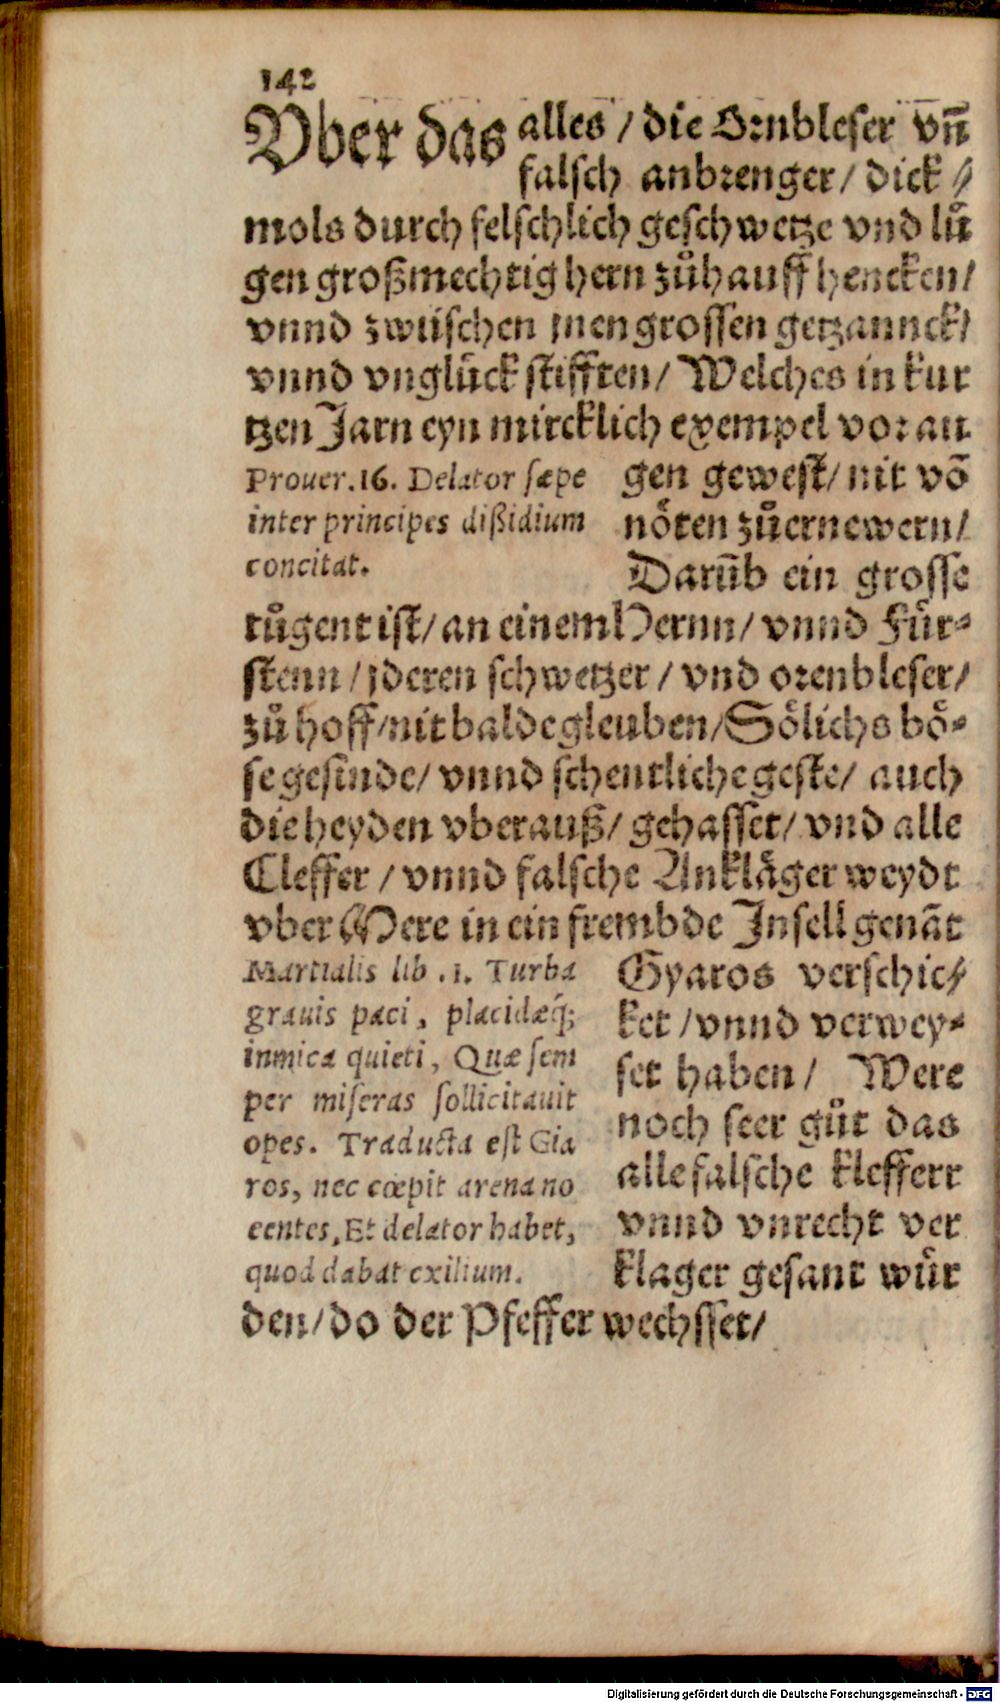 142
Vber das alles / die Ornbleser vñ
falsch anbrenger / dick⸗
mols durch felschlich geschwetze vnd lů
gen großmechtig hern zůhauff hencken /
vnnd zwüschen jnen grossen getzannck /
vnnd vnglück stifften / Welches in kur
tzen Jarn eyn mircklich exempel vor au
gen gewest / nit võ
nöten zůernewern /
Darũb ein grosse
Prouer. 16. Delator sæpe
inter principes dißidium
concitat.
tůgent ist / an einem Hernn / vnnd Für⸗
stenn / jderen schwetzer / vnd orenbleser /
zů hoff / nit balde gleuben / Sölichs bö⸗
se gesinde / vnnd schentliche geste / auch
die heyden vberauß / gehasset / vnd alle
Cleffer / vnnd falsche Ankläger weydt
vber Mere in ein frembde Insell genãt
Gyaros verschic⸗
ket / vnnd verwey⸗
set haben / Were
noch seer gůt das
alle falsche kleffer
vnnd vnrecht ver
klager gesant wür
Martialis lib .1. Turba
grauis paci, placidæq́;
inmica quieti, Quæ sem
per miseras sollicitauit
opes. Traducta est Gia
ros, nec cœpit arena no
centes, Et delator habet,
quod dabat exilium.
den / do der Pfeffer wechsset /
Digitalisierung gefördert durch die Deutsche Forschungsgemeinschaft - DFG